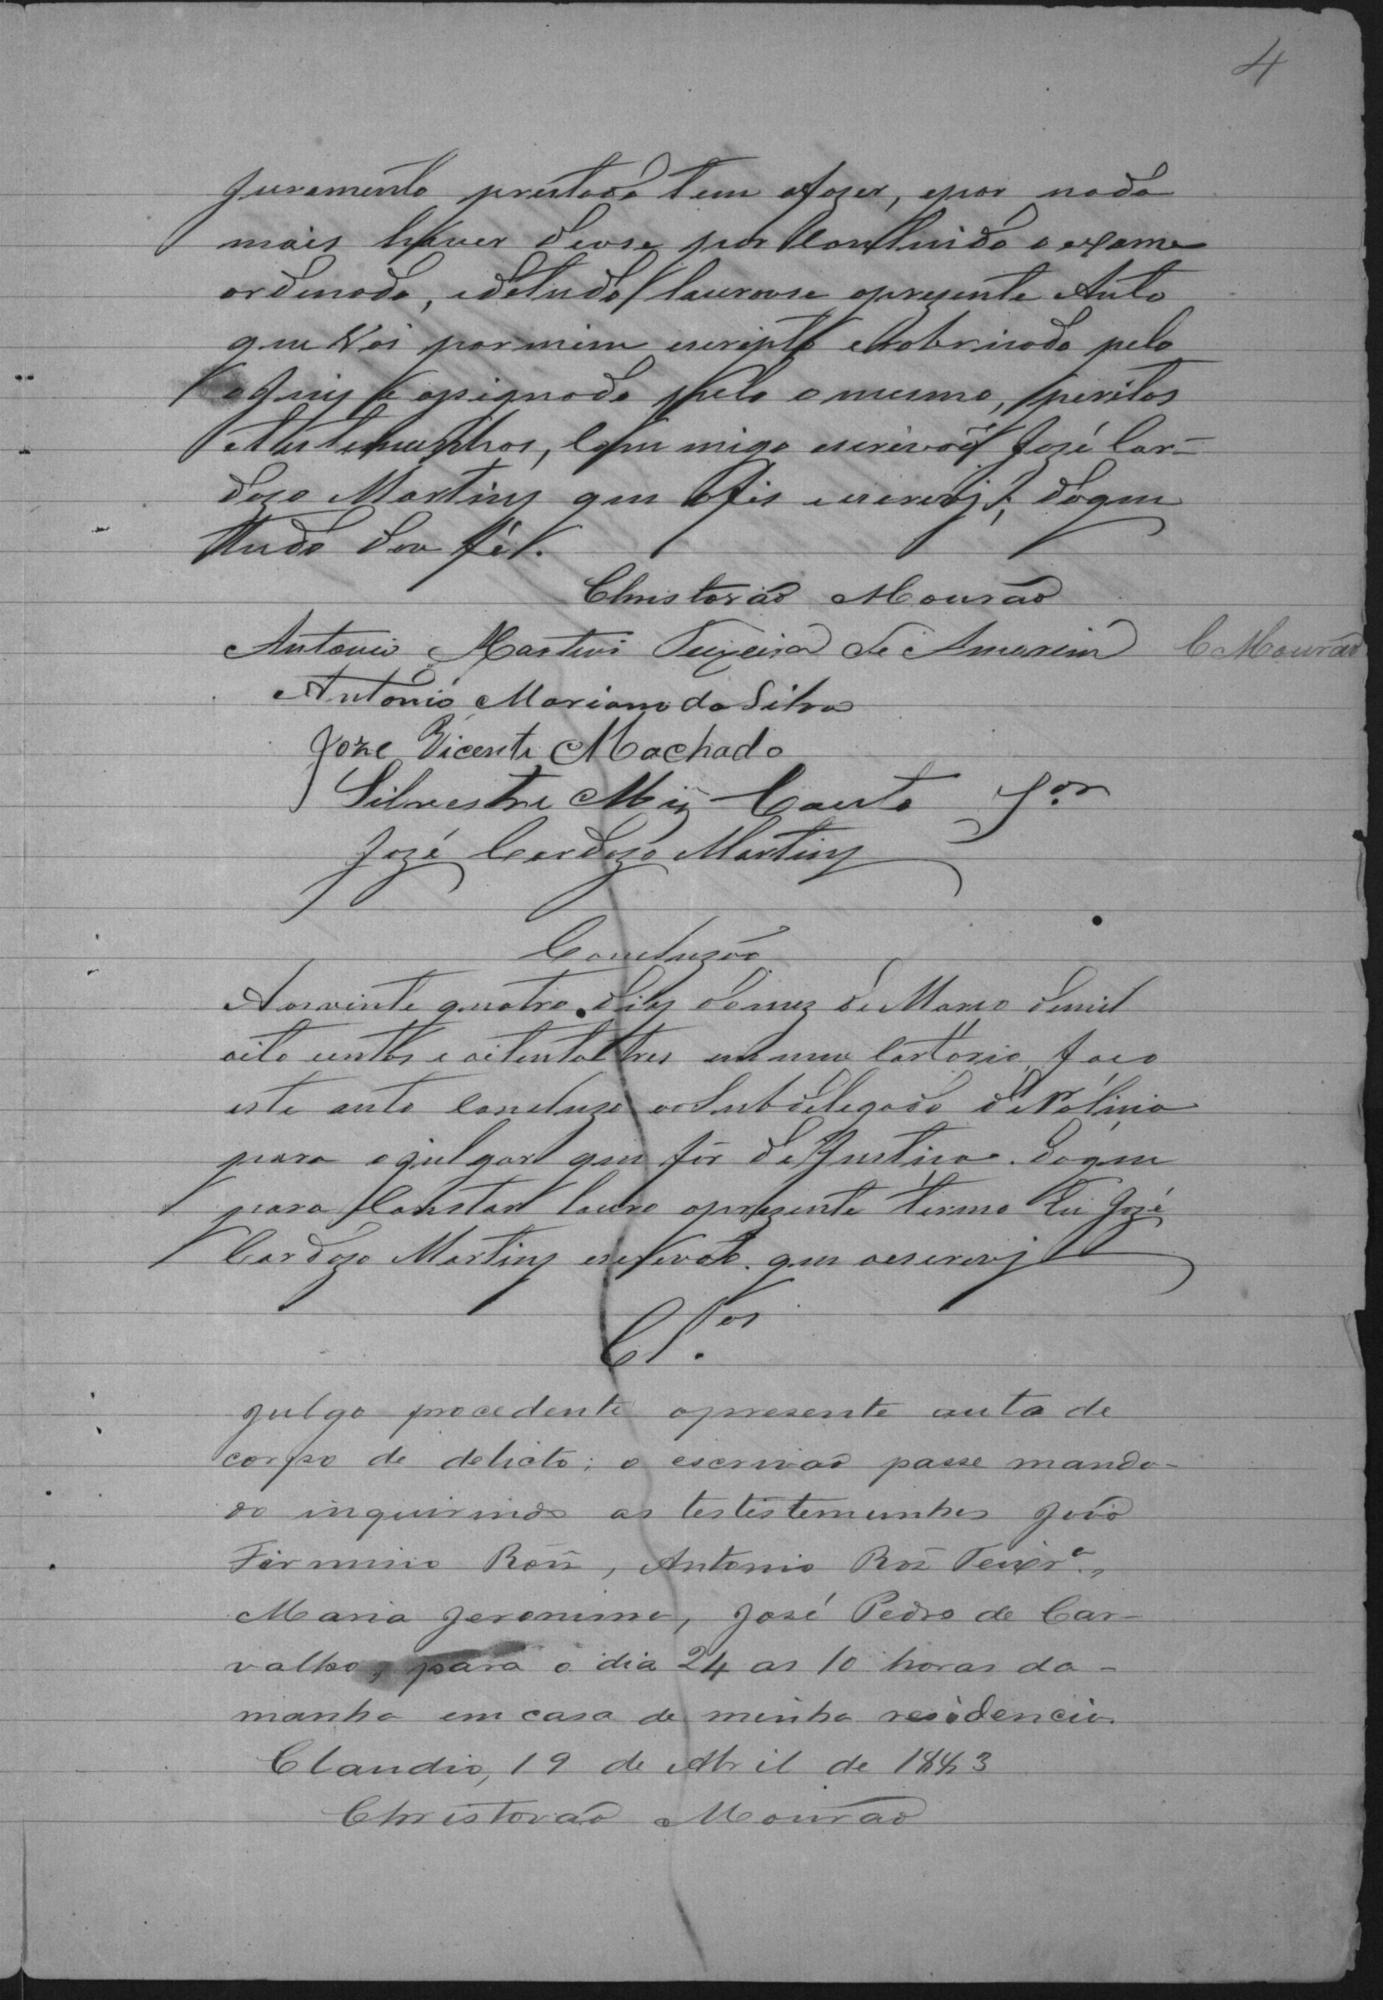 4
Juramento prestado tem afazer, epor nada
mais haver deuse por Concluido o exame
ordenado, edetudo lavrouse opresente Auto
que vai pormim escripto erobricado pelo
o Juiz e asignado pelo o mesmo, peritos
etestemunhas, Com migo escrivão José Car-
dozo Martins que ofis escrevj; doque
tudo dou fé.
Christovão Mourão
Antonio Martins Teixeira de Amorim C Mourão
Antonio Mariano da Silva
Joze Vicente Machado
Silvestre Miz Couto Jor
Jozé Cardozo Martins
Concluzão
Aosvinte quatro dias domez de Março demil
oito centos e oitenta tres em meu Cartorio, faço
este auto Concluzo aoSubdelegado de Policia
para o julgar que fôr de Justiça. doque
para Constar lavro opresente termo Eu José
Cardozo Martins escrivão. que oescrevj
Clos.
Julgo procedente opresente auto de
corpo de delicto; o escrivão passe manda-
do inquirindo as testestemunhas João
Firmino Roiz, Antonio Roz Teixra.,
Maria Jeronima, José Pedro de Car-
valho, para o dia 24 as 10 horas da
manha em casa de minha residencia.
Claudio, 19 de Abril de 1883
Christovão Mourão